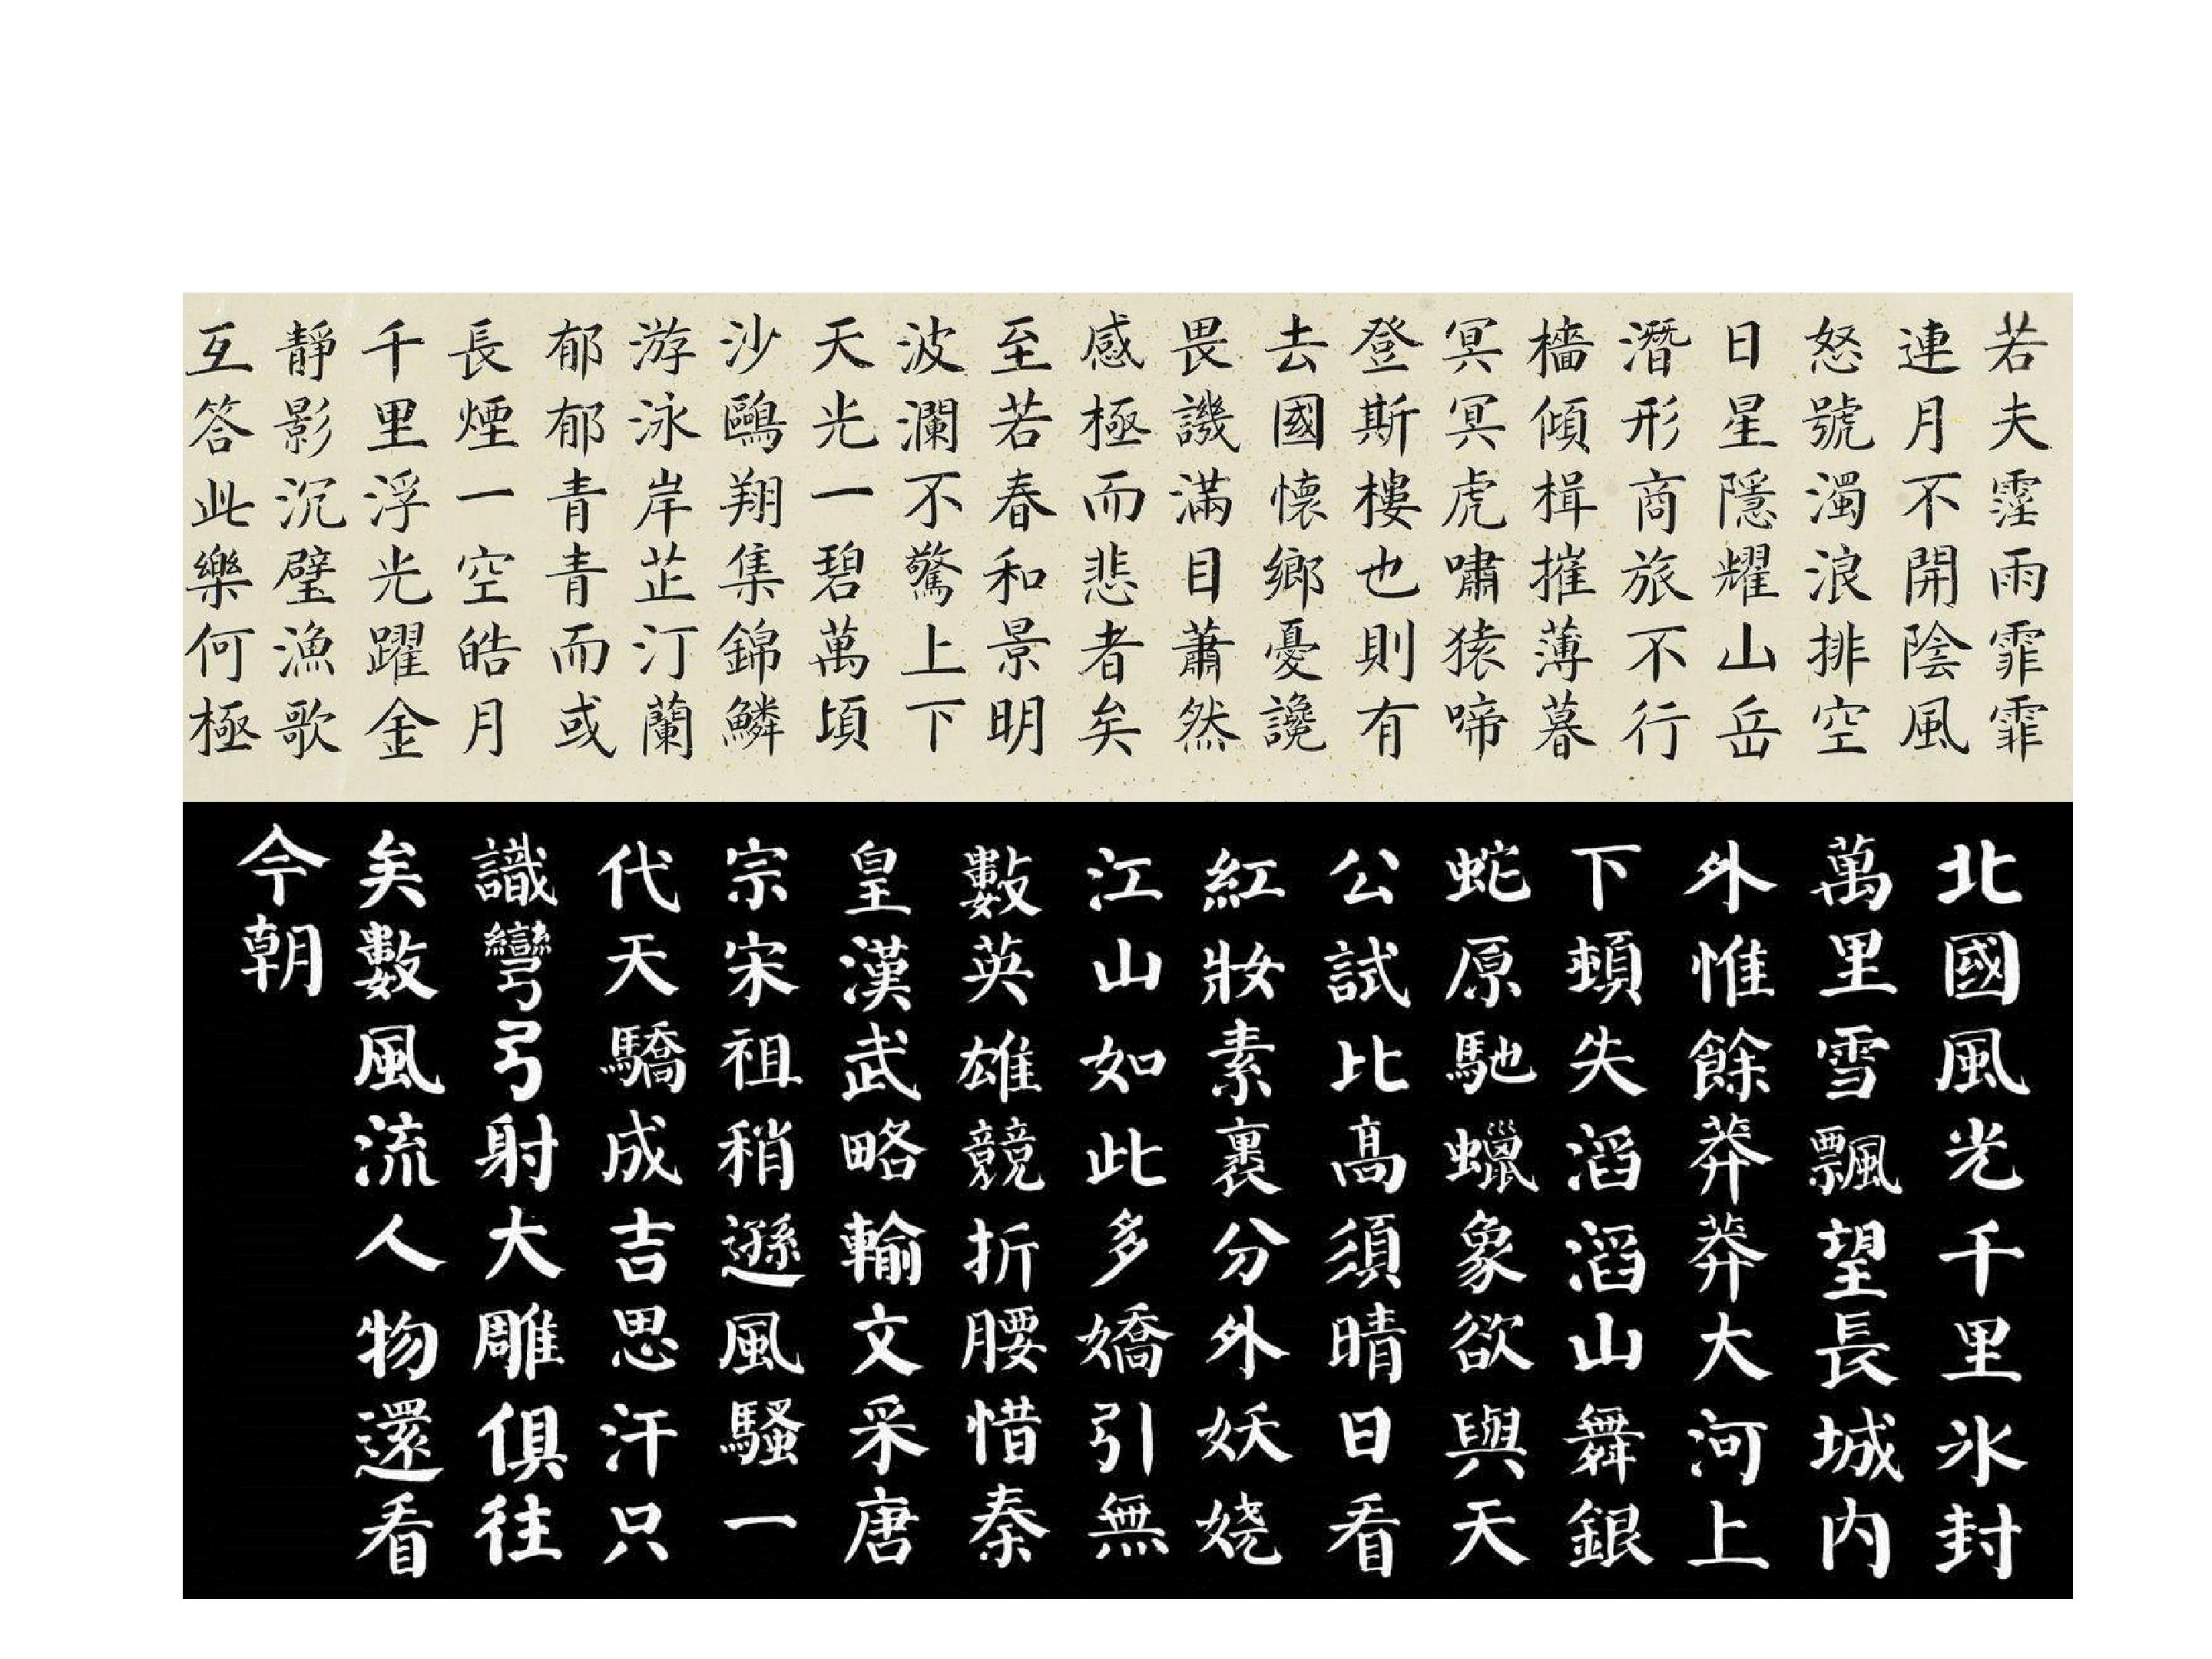 若夫霪雨霏霏
連月不開陰風
怒號濁浪排空
日星隱耀山岳
潛形商旅不行
檣傾楫摧薄暮
冥冥虎嘯猿啼
登斯樓也則有
去國懷鄉憂讒
畏譏滿目蕭然
感極而悲者矣
至若春和景明
波瀾不驚上下
天光一碧萬頃
沙鷗翔集錦鱗
游泳岸芷汀蘭
郁郁青青而或
長煙一空皓月
千里浮光躍金
靜影沉璧漁歌
互答此樂何極
北國風光千里氷封
萬里雪飄望長城内
外惟餘莽莽大河上
下頓失滔滔山舞銀
蛇原馳蠟象欲與天
公試比高須晴日看
紅妝素裹分外妖娆
江山如此多嬌引無
數英雄競折腰惜秦
皇漢武略輸文采唐
宗宋祖稍遜風騷一
代天驕成吉思汗只
識彎弓射大雕俱往
矣數風流人物還看
今朝